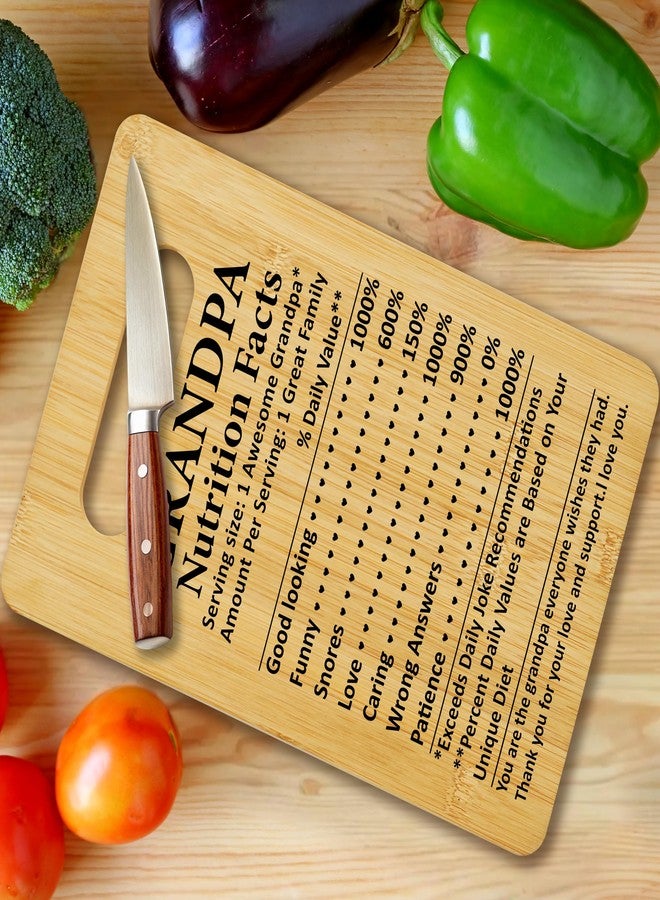 GRANDPA
Nutrition Facts
Serving size: 1 Awesome Grandpa*
Amount Per Serving: 1 Great Family
% Daily Value**
Good looking 1000%
Funny 600%
Snores 150%
Love 1000%
Caring 900%
Wrong Answers 0%
Patience 1000%
*Exceeds Daily Joke Recommendations
**Percent Daily Values are Based on Your
Unique Diet
You are the grandpa everyone wishes they had.
Thank you for your love and support.I love you.